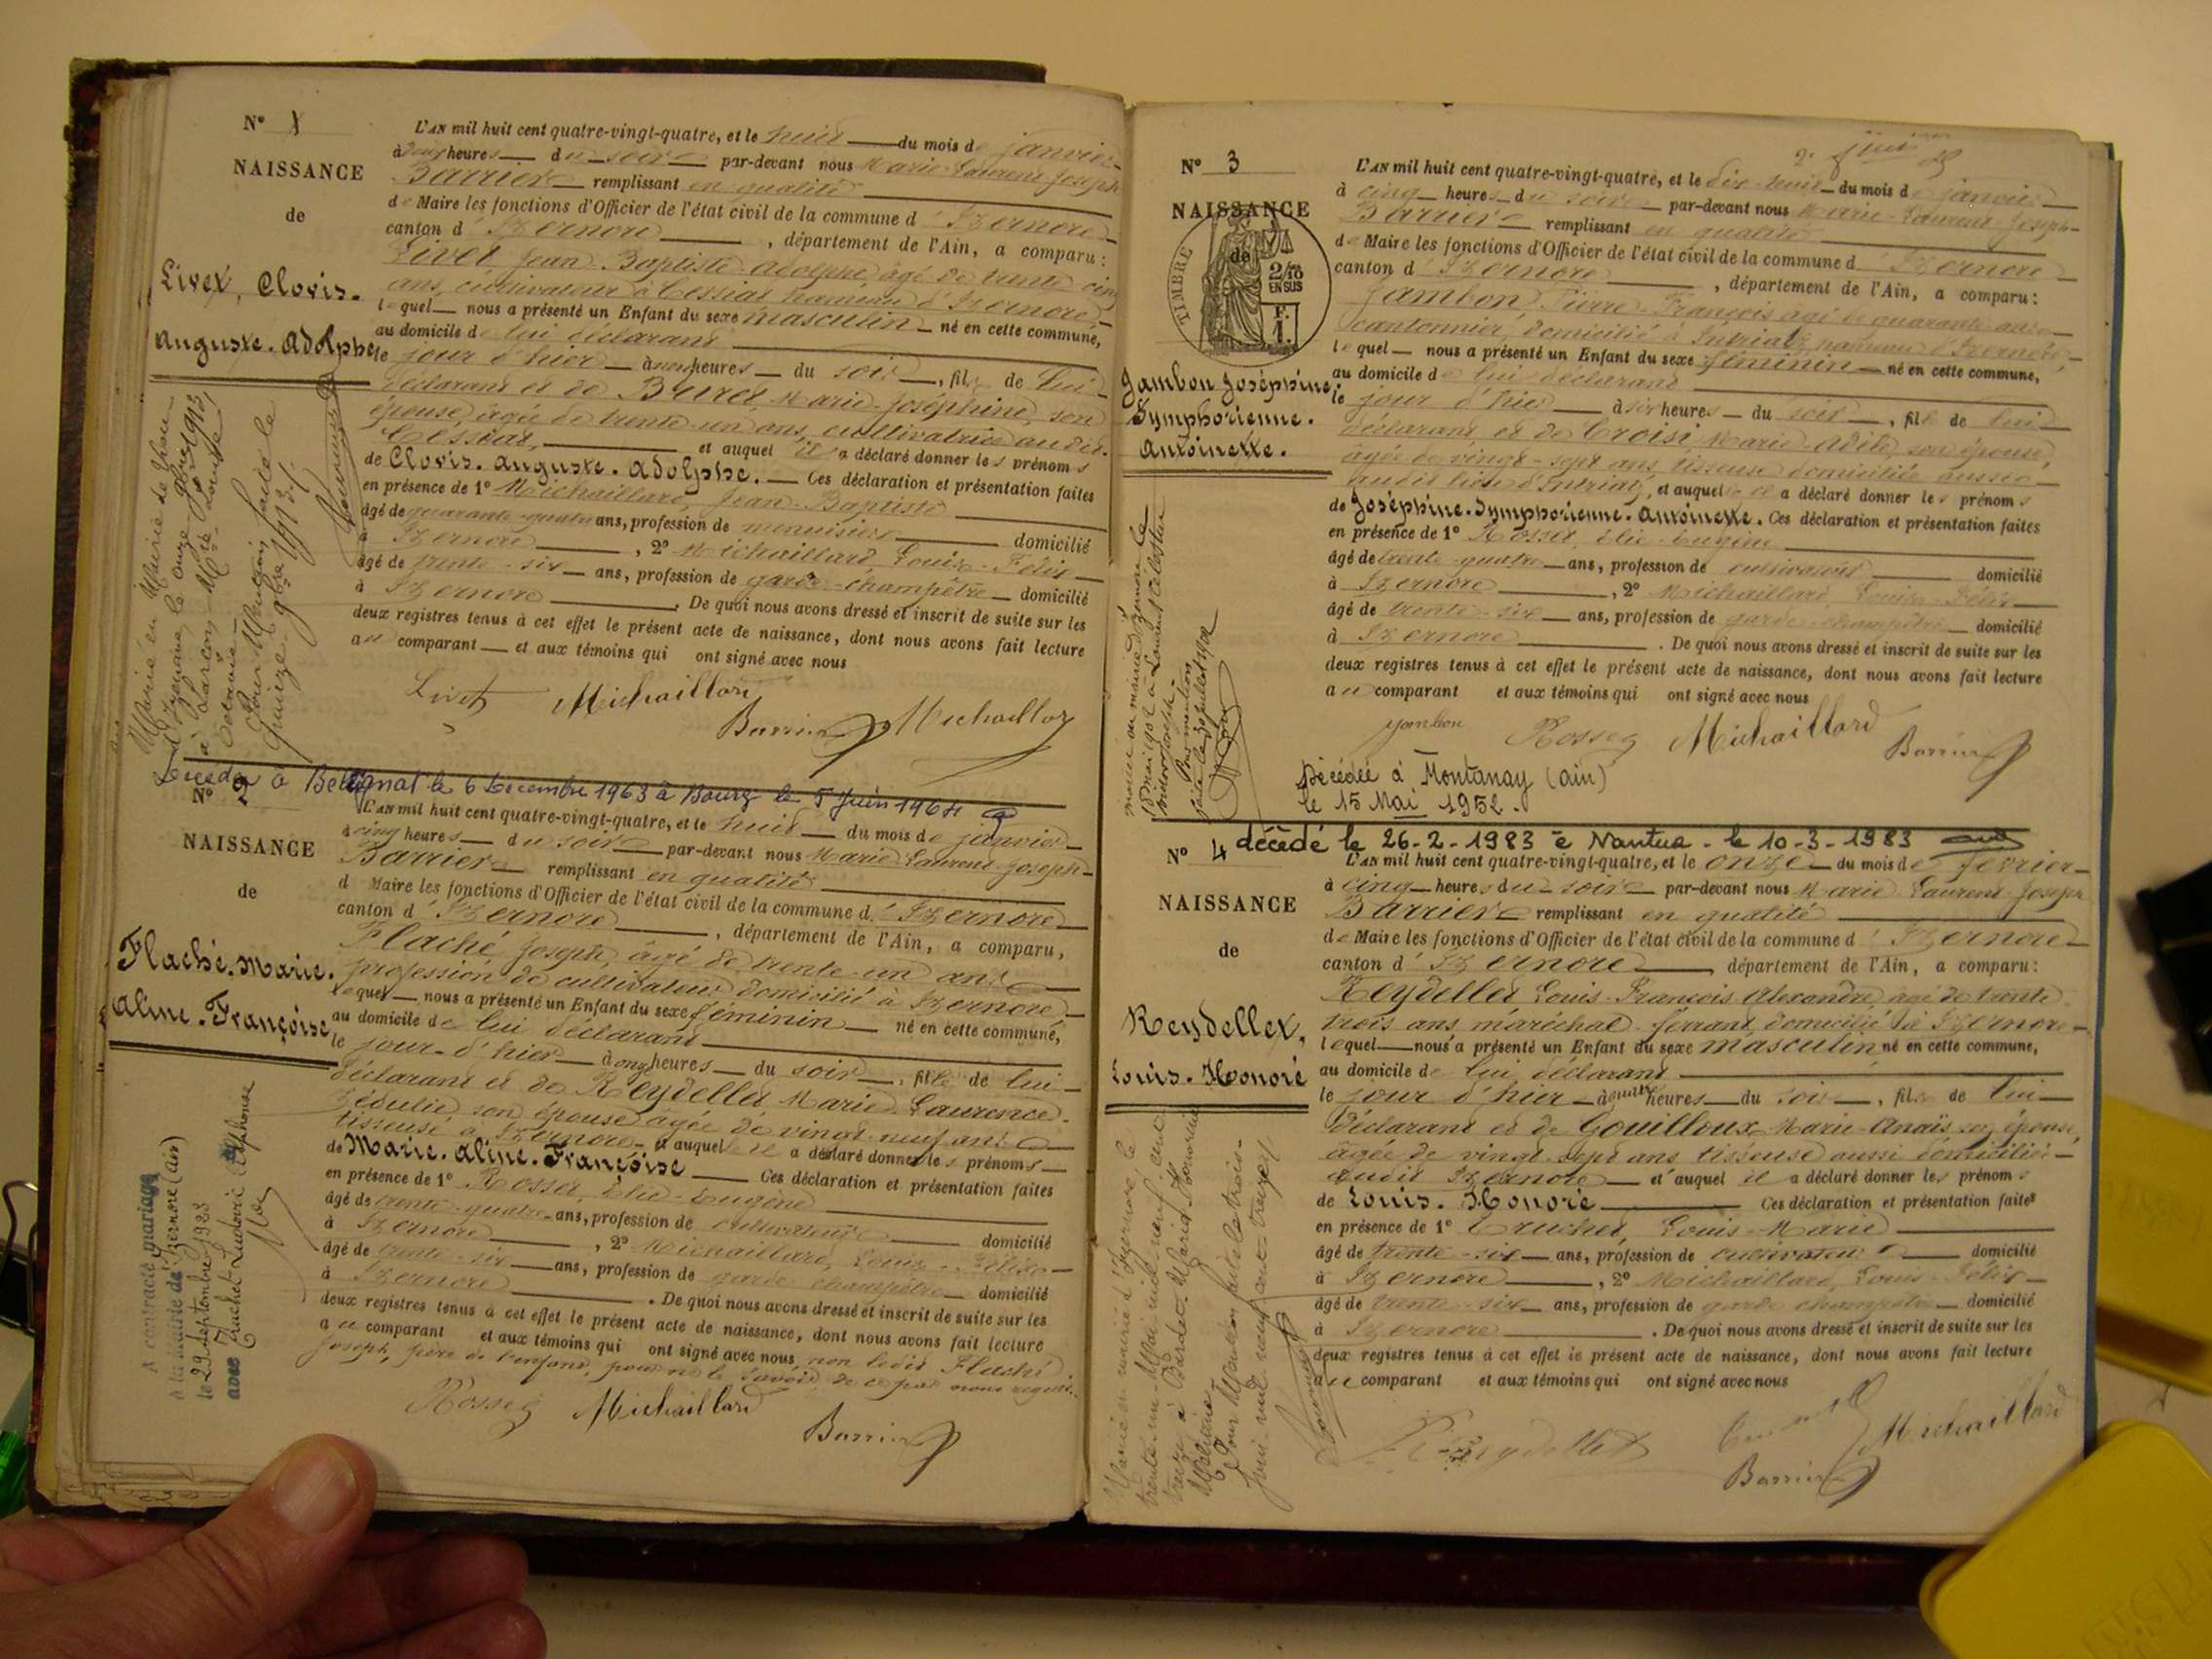 N° 1
NAISSANCE
de
Livet, Clovis.
Auguste. Adolphe
L'AN mil huit cent quatre-vingt-quatre, et le huit du mois de janvier
à deux heures du soir par-devant nous Marie-Laurent-Joseph
Barrier remplissant en qualité
de Maire les fonctions d'Officier de l'état civil de la commune d'Izernore
canton d'Izernore, département de l'Ain, a comparu:
Livet, Jean-Baptiste-Adolphe, âgé de trente cinq
ans, cultivateur à Cessiat hameau d'Izernore
lequel nous a présenté un Enfant du sexe masculin né en cette commune,
au domicile de lui déclarant
le jour d'hier à heures du soir, fils de lui
déclarant et de Buret, Marie-Joséphine, son
épouse, âgée de trente-un ans, cultivatrice audit
Cessiat, et auquel il a déclaré donner les prénoms
de Clovis. Auguste. Adolphe. Ces déclaration et présentation faites
en présence de 1° Michaillard, Jean-Baptiste
âgé de quarante-quatre ans, profession de menuisier domicilié
à Izernore, 2° Michaillard, Louis-Félix
âgé de trente-six ans, profession de garde-champêtre domicilié
à Izernore. De quoi nous avons dressé et inscrit de suite sur les
deux registres tenus à cet effet le présent acte de naissance, dont nous avons fait lecture
au comparant et aux témoins qui ont signé avec nous
Livet Michaillard
Barrier Michaillard
Marié en Mairie de
d'Izernore, le onze 1913
à
Octavie
Pour Mention faite le
quinze 9bre 1913
Décédé à Bellignat le 6 Décembre 1963 à Bourg le 5 Juin 1964
N° 2
NAISSANCE
de
Flaché. Marie.
Aline. Françoise
L'AN mil huit cent quatre-vingt-quatre, et le huit du mois de janvier
à cinq heures du soir par-devant nous Marie-Laurent-Joseph
Barrier remplissant en qualité
d Maire les fonctions d'Officier de l'état civil de la commune d'Izernore
canton d'Izernore, département de l'Ain, a comparu,
Flaché, Joseph, âgé de trente-un ans
profession de cultivateur domicilié à Izernore
lequel nous a présenté un Enfant du sexe féminin né en cette commune,
au domicile de lui déclarant
le jour-d'hier à onze heures du soir, fille de lui
déclarant et de Reydellet Marie-Laurence
Zédulie, son épouse âgée de vingt-neuf ans
tisseuse à Izernore et auquel il a déclaré donner les prénoms
de Marie. Aline. Françoise Ces déclaration et présentation faites
en présence de 1° Rosset, Elie-Eugène
âgé de trente-quatre ans, profession de cultivateur domicilié
à Izernore, 2° Michaillard, Louis-Félix
âgé de trente-six ans, profession de garde champêtre domicilié
à Izernore. De quoi nous avons dressé et inscrit de suite sur les
deux registres tenus à cet effet le présent acte de naissance, dont nous avons fait lecture
au comparant et aux témoins qui ont signé avec nous, non ledit Flaché
Joseph, père de l'enfant, pour ne le savoir, de ce par nous requis.
Rosset Michaillard
Barrier
A contracté mariage
à la mairie de Izernore (ain)
le 29 septembre 1923
avec Truchet Ludovic Alphonse
N° 3
NAISSANCE
de
TIMBRE
2/10
EN SUS
F.
1.
Jambon Joséphine.
Symphorienne.
Antoinette.
L'AN mil huit cent quatre-vingt-quatre, et le dix-huit du mois de janvier
à cinq heures du soir par-devant nous Marie-Laurent-Joseph
Barrier remplissant en qualité
de Maire les fonctions d'Officier de l'état civil de la commune d'Izernore
canton d'Izernore, département de l'Ain, a comparu:
Jambon, Pierre-François âgé de quarante ans
cantonnier, domicilié à Intriat, hameau d'Izernore,
lequel nous a présenté un Enfant du sexe féminin né en cette commune,
au domicile de lui déclarant
le jour d'hier à six heures du soir, fille de lui
déclarant, et de Croisi Marie-Adèle, son épouse,
âgée de vingt-sept ans, tisseuse domiciliée aussi
audit lieu d'Intriat, et auquel il a déclaré donner les prénoms
de Joséphine. Symphorienne. Antoinette. Ces déclaration et présentation faites
en présence de 1° Rosset, Elie-Eugène
âgé de trente-quatre ans, profession de cultivateur domicilié
à Izernore, 2° Michaillard, Louis-Félix
âgé de trente-six ans, profession de garde champêtre domicilié
à Izernore. De quoi nous avons dressé et inscrit de suite sur les
deux registres tenus à cet effet le présent acte de naissance, dont nous avons fait lecture
au comparant et aux témoins qui ont signé avec nous
Jambon Rosset Michaillard
Barrier
Décédée à Montanay (ain)
le 15 Mai 1952.
décédé le 26-2-1983 à Nantua - le 10-3-1983
N° 4
NAISSANCE
de
Reydellet,
Louis. Honoré
L'AN mil huit cent quatre-vingt-quatre, et le onze du mois de février
à cinq heures du soir par-devant nous Marie-Laurent-Joseph
Barrier remplissant en qualité
de Maire les fonctions d'Officier de l'état civil de la commune d'Izernore
canton d'Izernore, département de l'Ain, a comparu:
Reydellet Louis-François-Alexandre âgé de trente
trois ans, maréchal-ferrant, domicilié à Izernore
lequel nous a présenté un Enfant du sexe masculin né en cette commune,
au domicile de lui déclarant
le jour d'hier à quatre heures du soir, fils de lui
déclarant et de Gouilloux, Marie-Anaïs son épouse,
âgée de vingt-sept ans tisseuse aussi domiciliée
audit Izernore et auquel il a déclaré donner les prénoms
de Louis. Honoré Ces déclaration et présentation faites
en présence de 1° Truchet, Louis-Marie
âgé de trente-six ans, profession de cultivateur domicilié
à Izernore, 2° Michaillard, Louis-Félix
âgé de trente-six ans, profession de garde champêtre domicilié
à Izernore. De quoi nous avons dressé et inscrit de suite sur les
deux registres tenus à cet effet le présent acte de naissance, dont nous avons fait lecture
au comparant et aux témoins qui ont signé avec nous
Reydellet Michaillard
Barrier